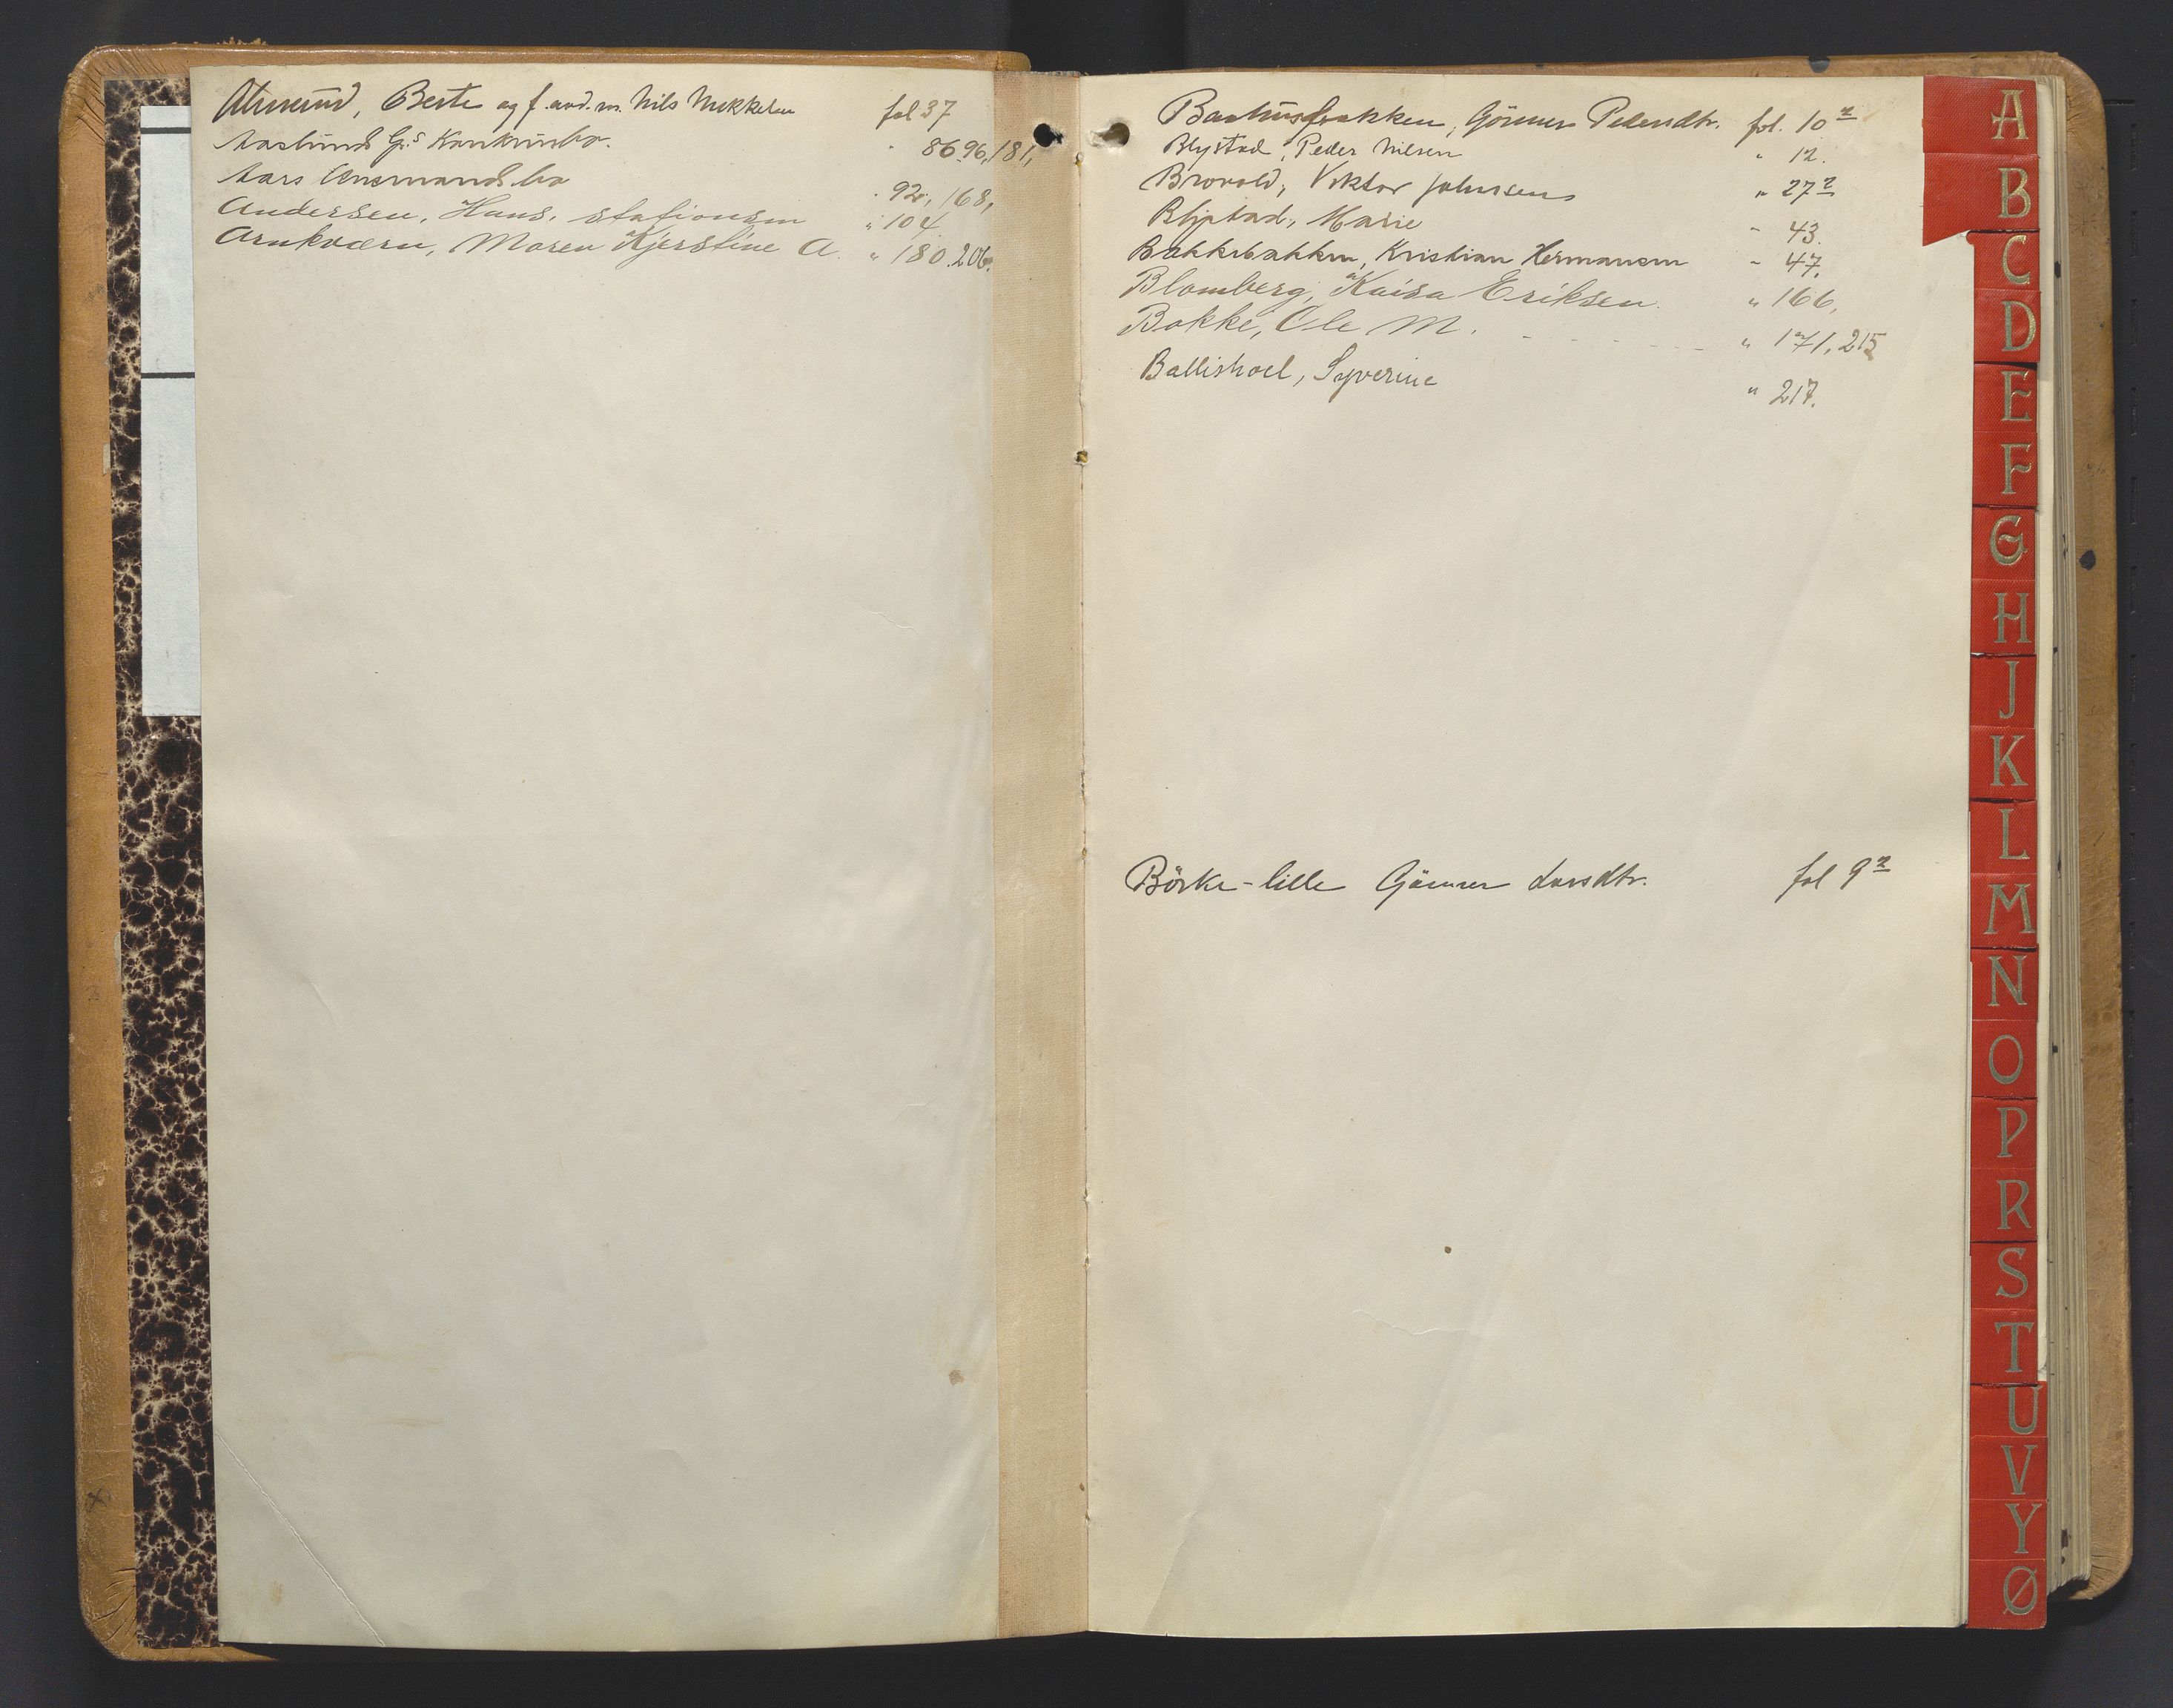 Berte og f. avd. m. Nils Mikkelsen fol 37
Aaslund Gs Konkursbo. " 86.96, 181,
Aars Enemandsbo " 92, 168,
Andersen, Hans, stationsm " 104
Arnkværn, Maren Kjerstine A. " 180. 206.
Gönner Pedersdtr. fol. 10 2
Blystad, Peder Nilsen " 12.
Brovold, Viktor Johnsen " 27 2
Blystad, Marie " 43.
Bakkebakken, Kristian Hermansen " 47.
Blomberg, Kaisa Eriksen. " 166,
Bakke, Ole M. " 171, 215
Ballishoel, Syverine " 217.
Börke-lille Gönner Larsdtr. fol 9 2
A
B
C
D
E
F
G
H
J
K
L
M
N
O
P
R
S
T
U
V
Y
Ø